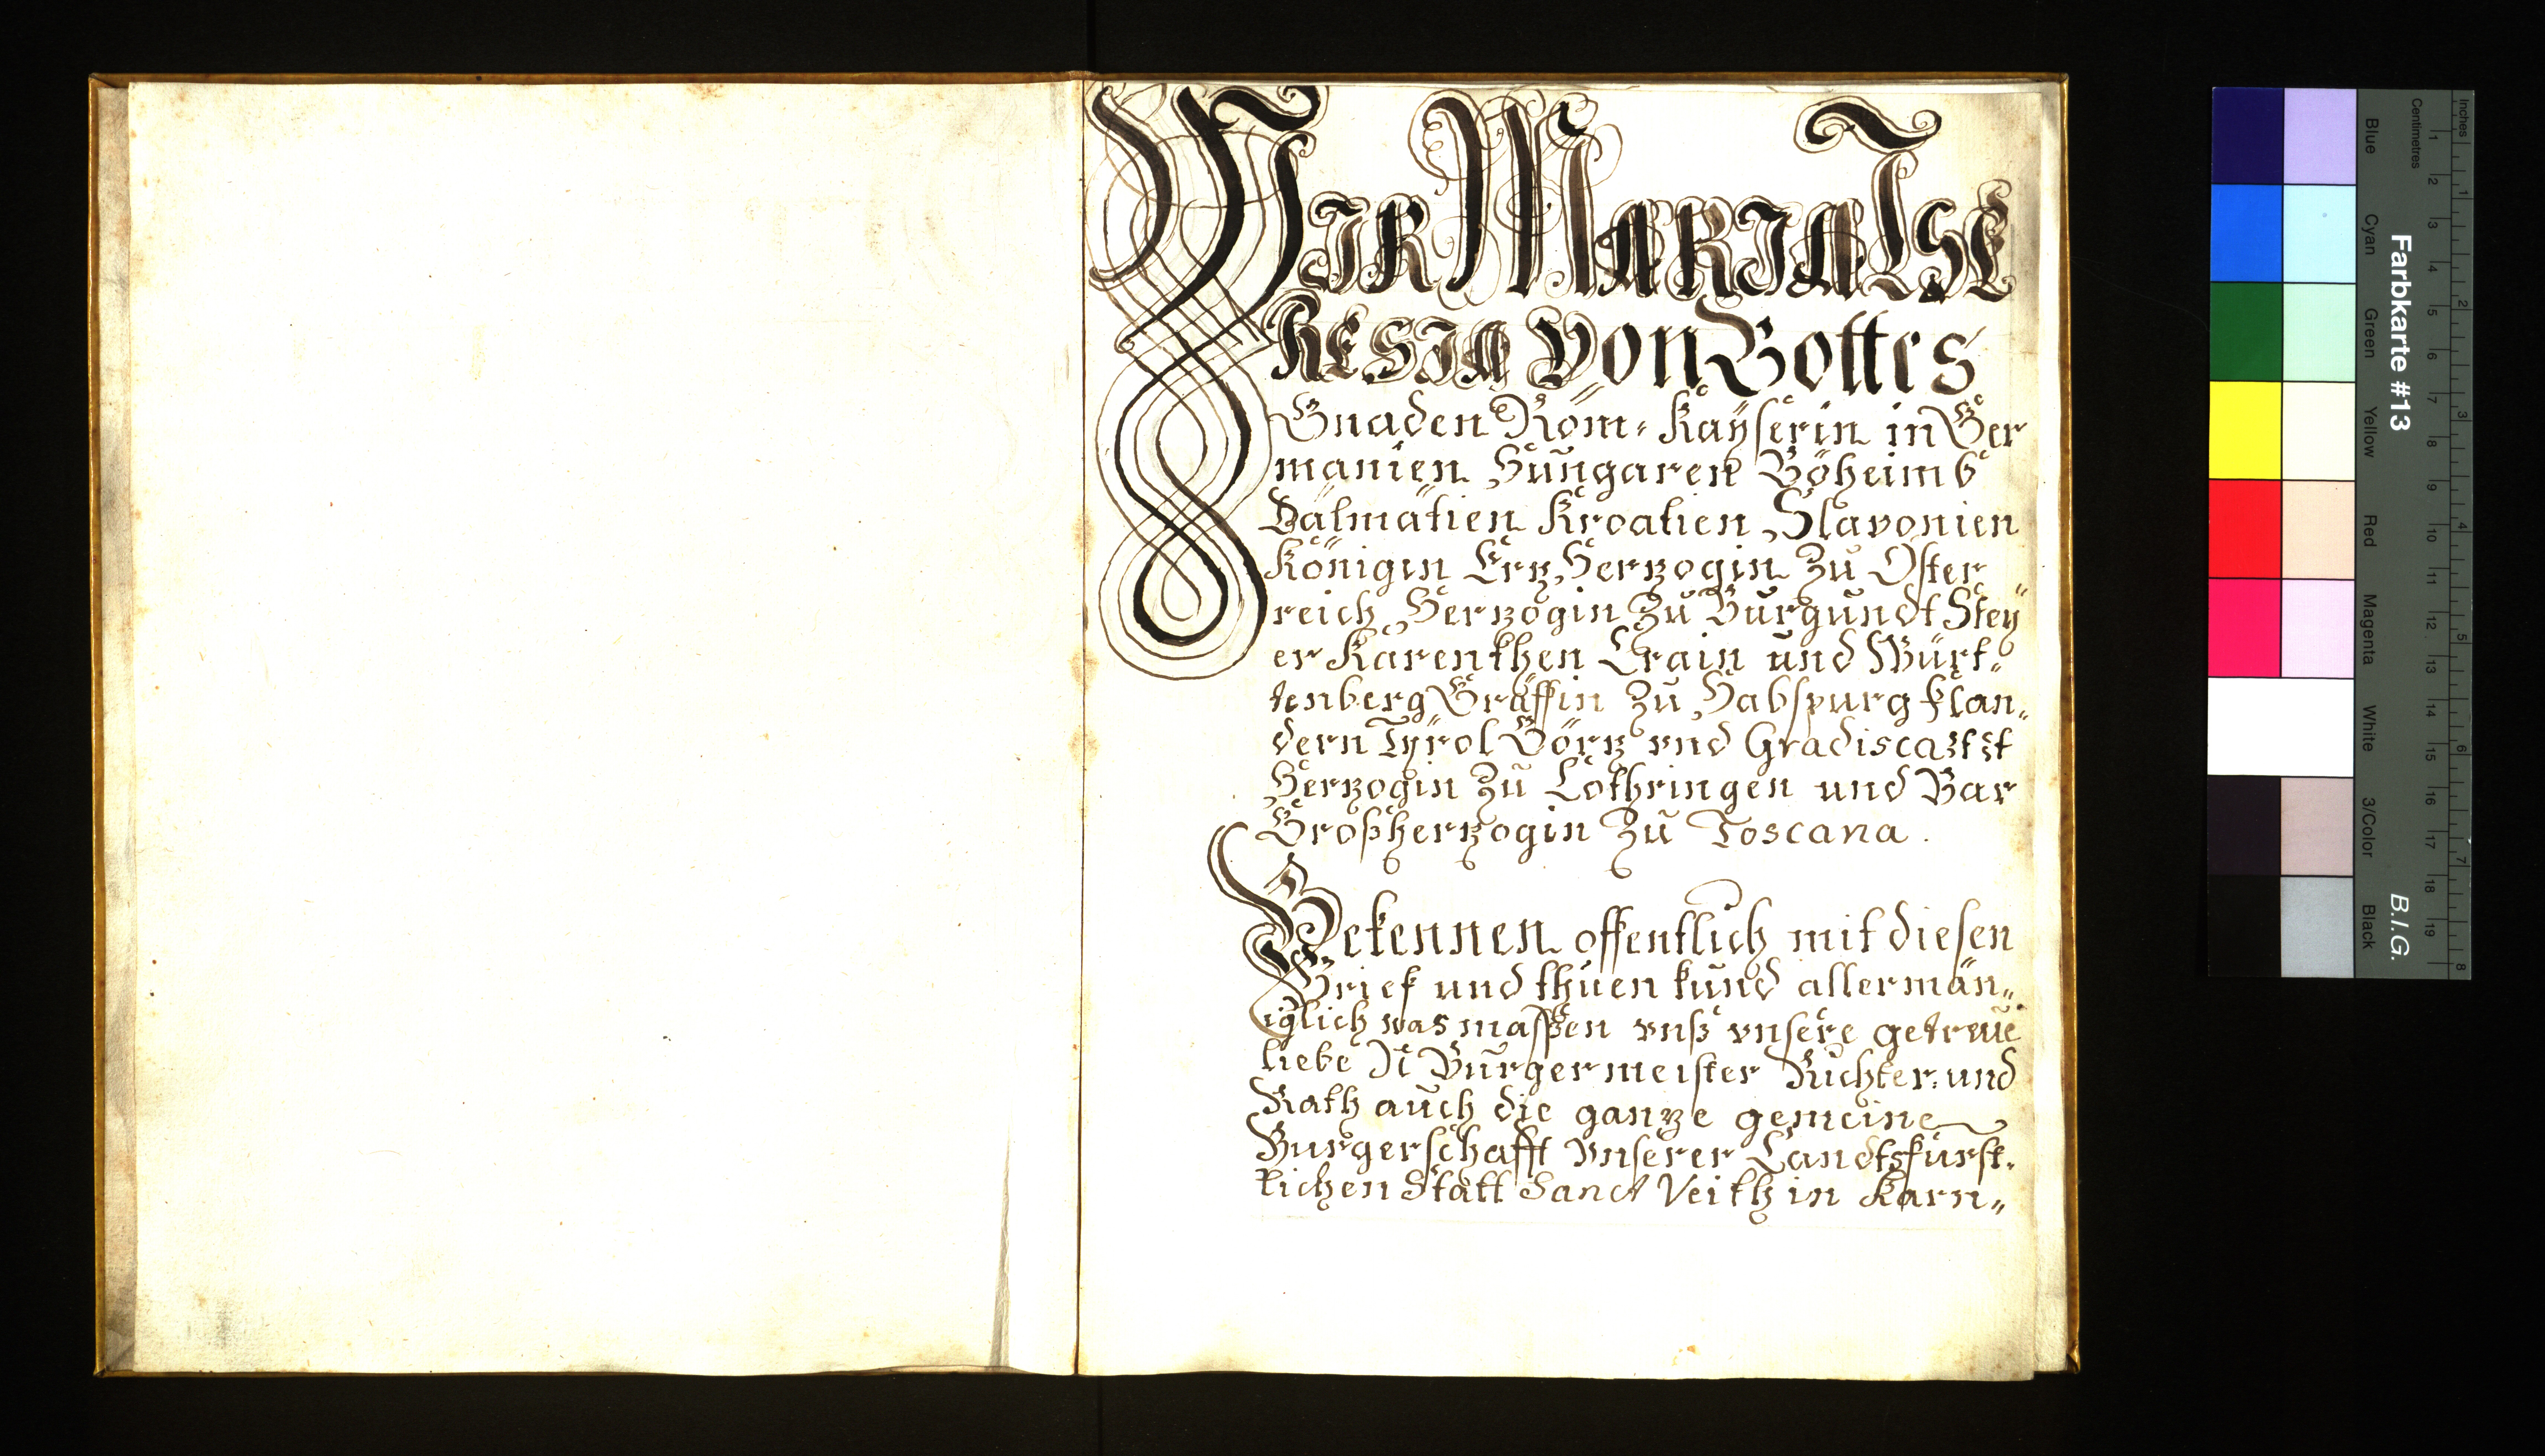 WIR MARIA THE
RESIA Von Gottes
Gnaden Röm: Kaÿserin in Ger
manien Hungaren Böheimb
Dalmatien Kroatien Slavonien
Königin Ertz Hertzogin Zu Öster
reich Hertzogin Zu Burgundt Steÿ
er Kärenthen Crain und Würt„
tenberg Gräffin Zu Habspurg Flan„
dern Tyrol Görtz vnd Gradisca
Hertzogin Zu Lothringen und Bar
Großhertzogin Zu Toscana.
Bekennen offentlich mit diesen
Brief und thuen kund allermän„
iglich was massen vnß vnsere getreüe
liebe N Burgermeister Richter und
Rath auch die gantze gemeine
Burgerschafft vnserer Landtsfürst„
lichen Statt Sanct Veith in Karn„
Inches
Centimetres
Farbkarte #13
B.I.G.
Blue
Cyan
Green
Yellow
Red
Magenta
White
3/Color
Black
1 2 3 4 5 6 7 8
1 2 3 4 5 6 7 8 9 10 11 12 13 14 15 16 17 18 19